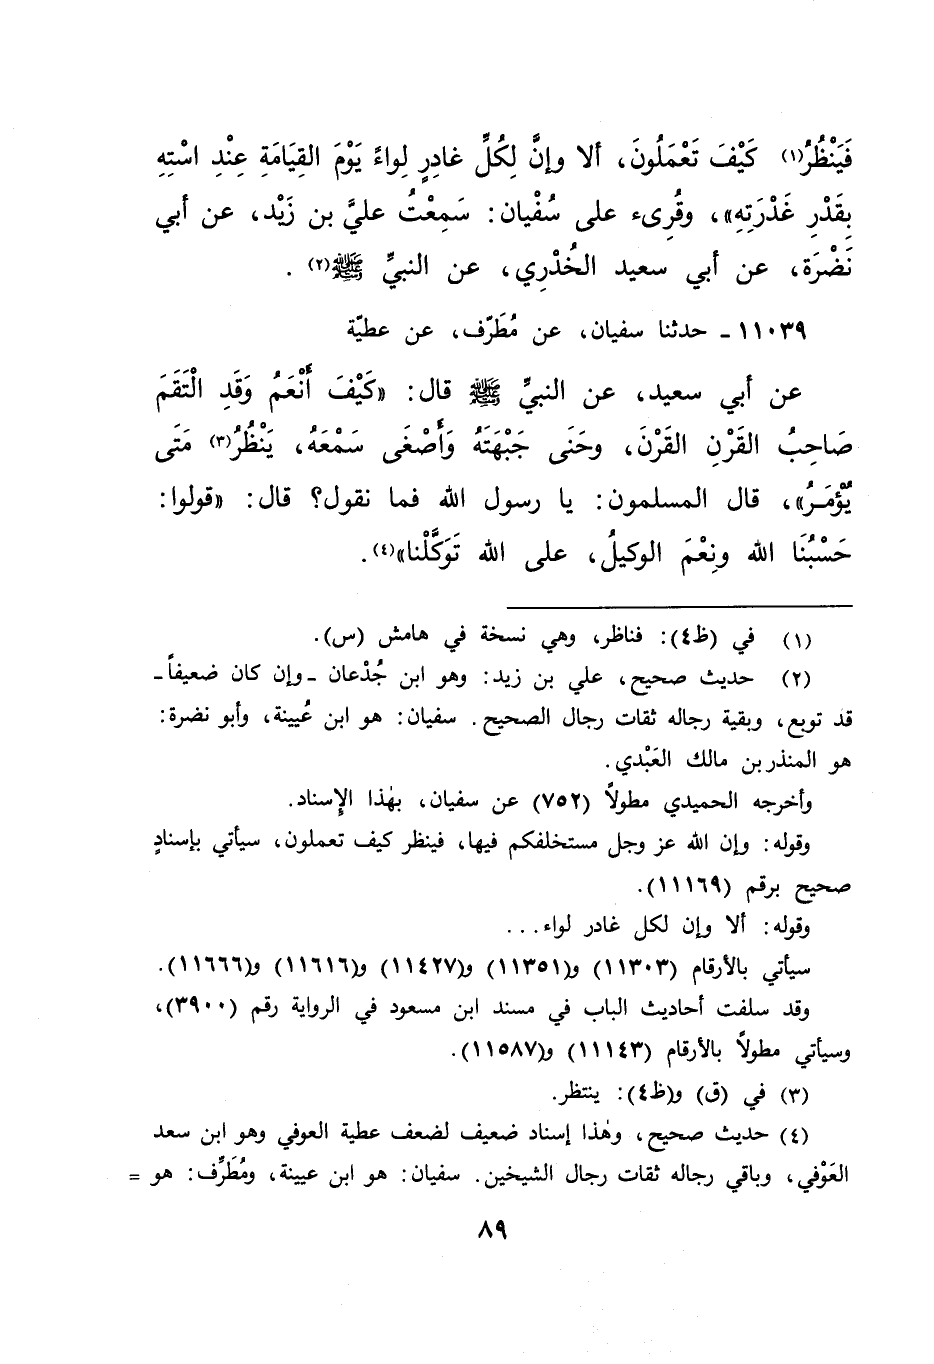 فَيَنْظُرُ(١) كَيْفَ تَعْمَلُونَ، ألا وإنَّ لِكُلِّ غادِرٍ لِواءً يَوْمَ القِيَامَةِ عِنْدِ اسْتِهِ
بِقَدْرِ غَدْرَتِهِ»، وقُرِىء على سُفْيان: سَمِعْتُ عليَّ بن زَيْد، عن أبي
نَضْرَة، عن أبي سعيد الخُدْرِي، عن النبيِّ ﷺ(٢) .
١١٠٣٩ ـ حدثنا سفيان، عن مُطَرّف، عن عطيّة
عن أبي سعيد، عن النبيِّ ﷺ قال: «كَيْفَ أَنْعَمُ وَقَدِ الْتَقَمَ
صَاحِبُ القَرْنِ القَرْنَ، وحَنَى جَبْهَتَهُ وَأَصْغَى سَمْعَهُ، يَنْظُرُ(٣) مَتَى
يُؤْمَرُ»، قال المسلمون: يا رسول الله فما نقول؟ قال: «قولوا:
حَسْبُنَا الله ونِعْمَ الوكيلُ، على الله تَوَكَّلْنا»(٤).
(١) في (ظ٤): فناظر، وهي نسخة في هامش (س).
(٢) حديث صحيح، علي بن زيد: وهو ابن جُدْعان ـ وإن كان ضعيفاً ـ
قد توبع، وبقية رجاله ثقات رجال الصحيح. سفيان: هو ابن عُيينة، وأبو نضرة:
هو المنذر بن مالك العَبْدي.
وأخرجه الحميدي مطولاً (٧٥٢) عن سفيان، بهٰذا الإسناد.
وقوله: وإن الله عز وجل مستخلفكم فيها، فينظر كيف تعملون، سيأتي بإسنادٍ
صحيح برقم (١١١٦٩).
وقوله: ألا وإن لكل غادر لواء...
سيأتي بالأرقام (١١٣٠٣) و(١١٣٥١) و(١١٤٢٧) و(١١٦١٦) و(١١٦٦٦).
وقد سلفت أحاديث الباب في مسند ابن مسعود في الرواية رقم (٣٩٠٠)،
وسيأتي مطولاً بالأرقام (١١١٤٣) و(١١٥٨٧).
(٣) في (ق) و(ظ٤): ينتظر.
(٤) حديث صحيح، وهٰذا إسناد ضعيف لضعف عطية العوفي وهو ابن سعد
العَوْفي، وباقي رجاله ثقات رجال الشيخين. سفيان: هو ابن عيينة، ومُطَرِّف: هو =
٨٩